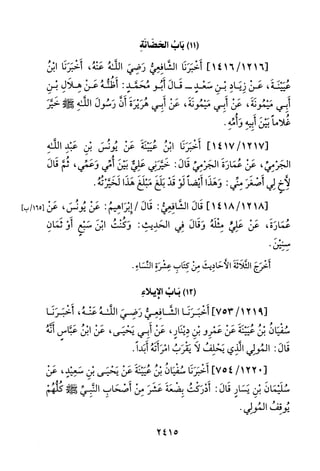 (١١) بَابُ الحَضَانَةِ
[١٤١٦/١٢١٦] أَخْبَرَنَا الشَّافِعِيُّ رَضِيَ اللَّهُ عَنْهُ، أَخْبَرَنَا ابْنُ
عُيَيْنَةَ، عَنْ زِيَادِ بْنِ سَعْدٍ ـ قَالَ أَبُو مُحَمَّدٍ: أَظُنُّهُ عَنْ هِلَالِ بْنِ
أَبِي مَيْمُونَةَ، عَنْ أَبِي مَيْمُونَةَ، عَنْ أَبِي هُرَيْرَةَ أَنَّ رَسُولَ اللَّهِ ﷺ خَيَّرَ
غُلَاماً بَيْنَ أَبِيهِ وَأُمِّهِ.
[١٤١٧/١٢١٧] أَخْبَرَنَا ابْنُ عُيَيْنَةَ عَنْ يُونُسَ بْنِ عَبْدِ اللَّهِ
الجَرْمِيِّ، عَنْ عُمَارَةَ الجَرْمِيِّ قَالَ: خَيَّرَنِي عَلِيٌّ بَيْنَ أُمِّي وَعَمِّي، ثُمَّ قَالَ
لِأَخٍ لِي أَصْغَرَ مِنِّي: وَهَذَا أَيْضاً لَوْ قَدْ بَلَغَ مَبْلَغَ هَذَا لَخَيَّرْتُهُ.
[١٤١٨/١٢١٨] قَالَ الشَّافِعِيُّ: قَالَ / إِبْرَاهِيمُ: عَنْ يُونُسَ، عَنْ [١٦٥/ب]
عُمَارَةَ، عَنْ عَلِيٍّ مِثْلَهُ وَقَالَ فِي الحَدِيثِ: وَكُنْتُ ابْنَ سَبْعٍ أَوْ ثَمَانِ
سِنِينَ.
أَخْرَجَ الثَّلَاثَةَ الأَحَادِيثَ مِنْ كِتَابِ عِشْرَةِ النِّسَاءِ.
(١٢) بَابُ الإِيلَاءِ
[٧٥٣/١٢١٩] أَخْبَرَنَا الشَّافِعِيُّ رَضِيَ اللَّهُ عَنْهُ، أَخْبَرَنَا
سُفْيَانُ بْنُ عُيَيْنَةَ عَنْ عَمْرِو بْنِ دِينَارٍ، عَنْ أَبِي يَحْيَى، عَنْ ابْنُ عَبَّاسٍ أَنَّهُ
قَالَ: المُولِي الَّذِي يَحْلِفُ لَا يَقْرَبُ امْرَأَتَهُ أَبَداً.
[٧٥٤/١٢٢٠] أَخْبَرَنَا سُفْيَانُ بْنُ عُيَيْنَةَ عَنْ يَحْيَى بْنِ سَعِيْدٍ، عَنْ
سُلَيْمَانَ بْنِ يَسَارٍ قَالَ: أَدْرَكْتُ بِضْعَةَ عَشَرَ مِنْ أَصْحَابِ النَّبِيِّ ﷺ كُلُّهُمْ
يُوقِفُ المُولِي.
٢٤١٥